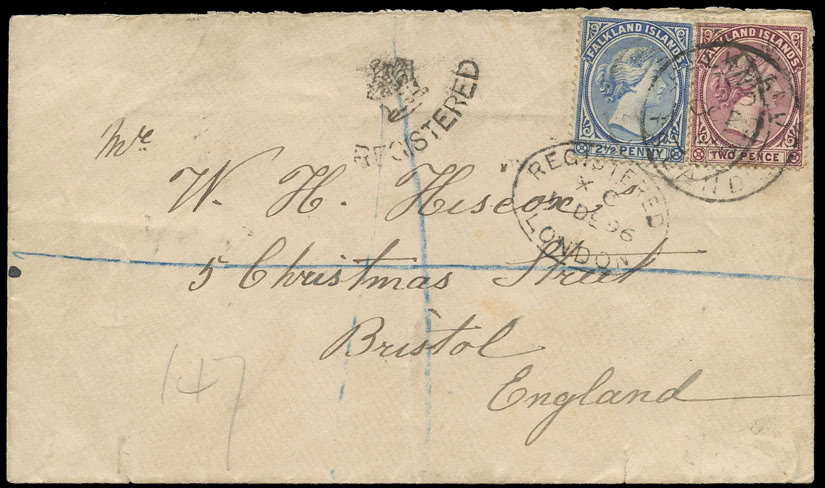 FALKLAND ISLANDS
2½ PENNY
FALKLAND ISLANDS
TWO PENCE
REGISTERED
REGISTERED
DE 96
LONDON
Mr
W. H. Hiscox,
5 Christmas Street
Bristol
England
147